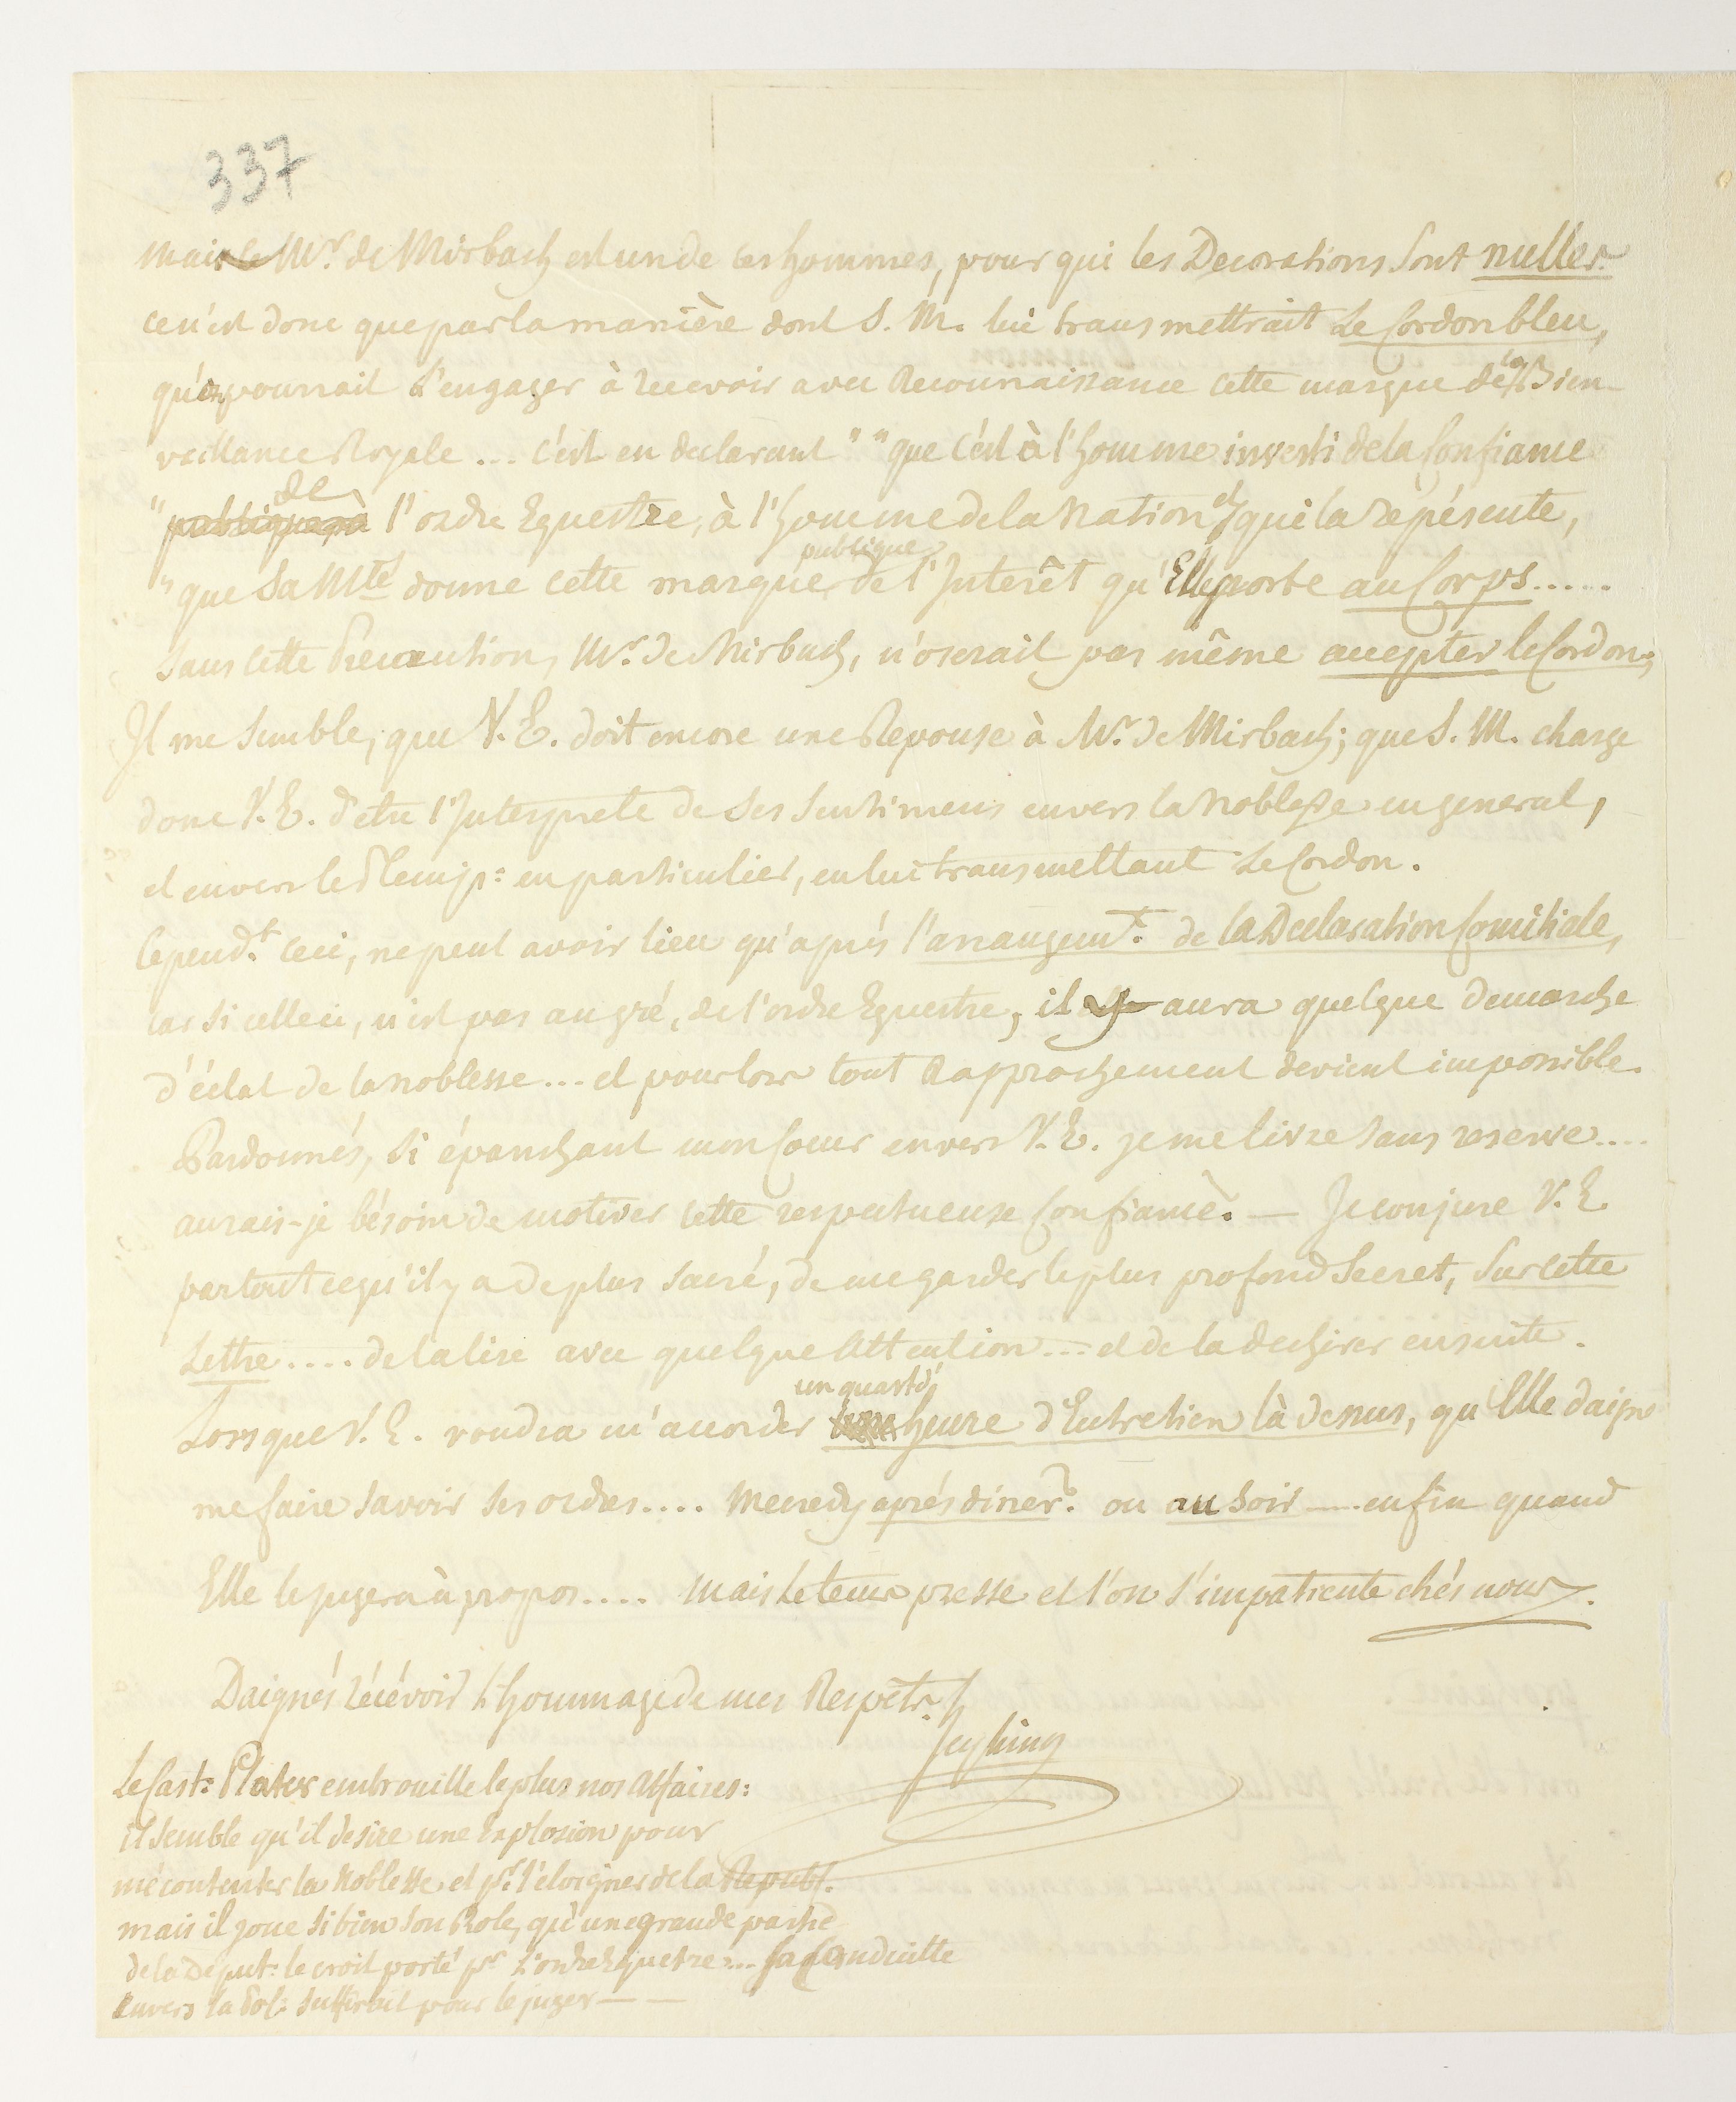 337
mais Mr. de Mirbach est un de ces hommes, pour qui les Decorations sont nulles.
ce n'est donc que par la manière dont S. M. lui transmettrait Le Cordon bleu,
qu'on pourrait l'engager à recevoir avec Reconnaissance cette marque de la Bien-
veillance Royale ... c'est en declarant " "que c'est à l'homme investi de la Confiance
" de l'ordre Equestre, à l'homme de la Nation et qui la repésente,
" que Sa Mté donne cette marque publique de l'Interêt qu'Elle porte au Corps......
sans cette Precaution, Mr. de Mirbach, n'oserait pas même accepter le Cordon;
Il me semble, que V. E. doit encore une Reponse à Mr. de Mirbach; que S. M. charge
donc V. E. d'etre l'Interprete de ses sentimens envers la Noblesse en general,
et envers le Plenip: en particulier, en lui transmettant Le Cordon.
Cepend.t ceci, ne peut avoir lieu qu'aprés l'arrangem.t de la Declaration Comitiale,
car si celle ci, n'est pas au gré, de l'ordre Equestre, il y aura quelque demarche
d'éclat de la noblesse ... et pour lors tout Rapprochement devient impossible.
Pardonnés, si épanchant mon Coeur envers V. E. je me livre sans reserve....
aurais-je bésoin de motiver cette respectueuse Confiance. — Je conjure V. E.
par tout ce qu'il y a de plus sacré, de me garder le plus profond Secret, sur cette
Lettre .... de la lire avec quelque Attention ... et de la dechirer ensuite.
Lorsque V. E. voudra m'accorder un quart d'heure d'Entretien là dessus, qu'Elle daigne
me faire savoir ses ordres.... Mecredy aprés diner? ou au soir .... enfin quand
Elle le jugera à propos.... mais le tems presse et l'on s'impatiente chés nous.
Daignés récévoir l'hommage de mes Respets.
Heyking
Le Cast: Plater embrouille le plus nos Affaires:
il semble qu'il desire une Explosion pour
mécontenter la Noblesse et pr. l'éloigner de la Republ.
mais il joue si bien son Role, qu'une grande partie
de la Deput: le croit porté pr. L'ordre Equetre ... sa Conduitte
envers la Pol: suffirait pour le juger — —